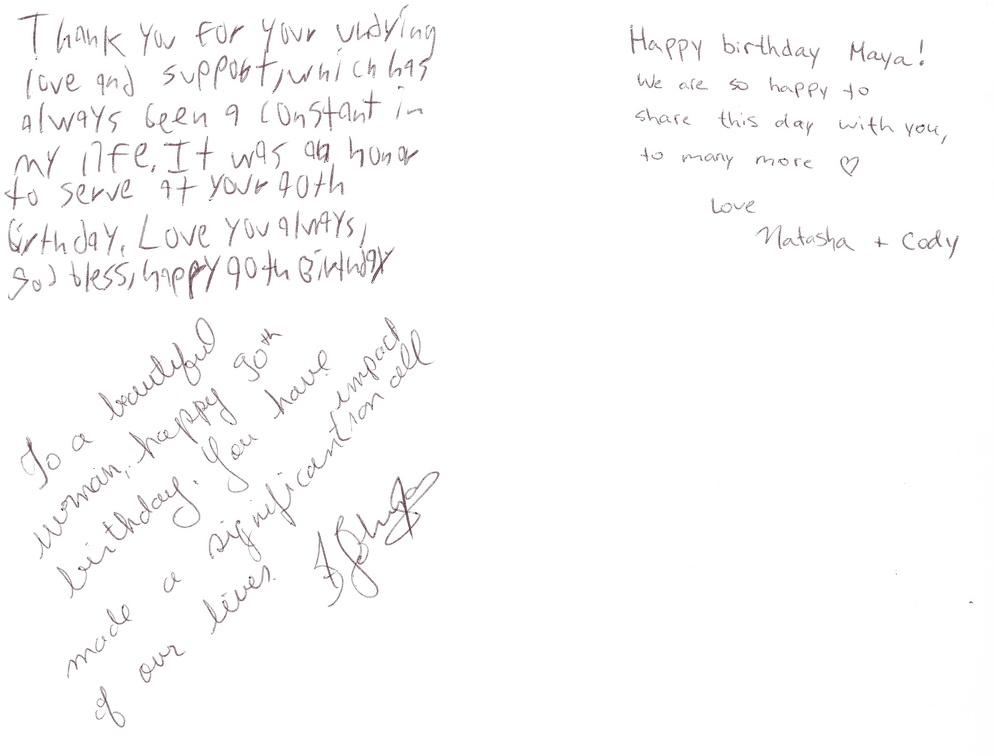 Thank you for your undying
love and support, which has
always been a constant in
my life. It was an honor
to serve at your 90th
Birthday. Love you always,
God bless, happy 90th Birthday
To a beautiful
woman, happy 90th
birthday. You have
made a significant impact
on all
of our lives.
Happy birthday Maya!
We are so happy to
share this day with you,
to many more ♡
Love
Natasha + Cody